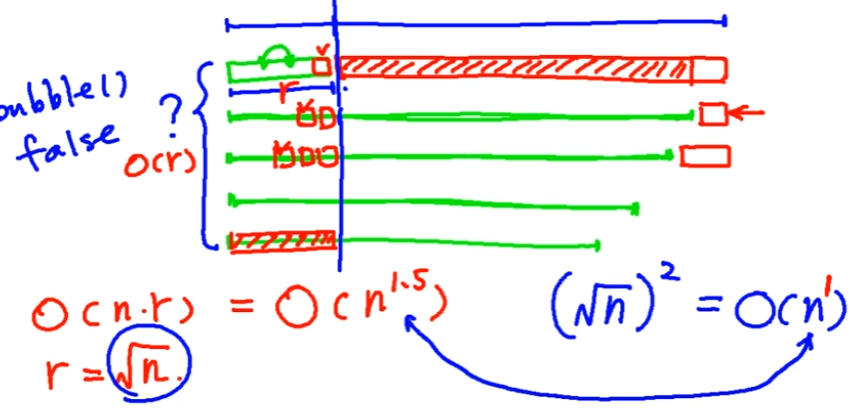 bubble()
false
?
r
O(r)
O(n·r) = O(n^1.5)
(√n)^2 = O(n^1)
r = √n.